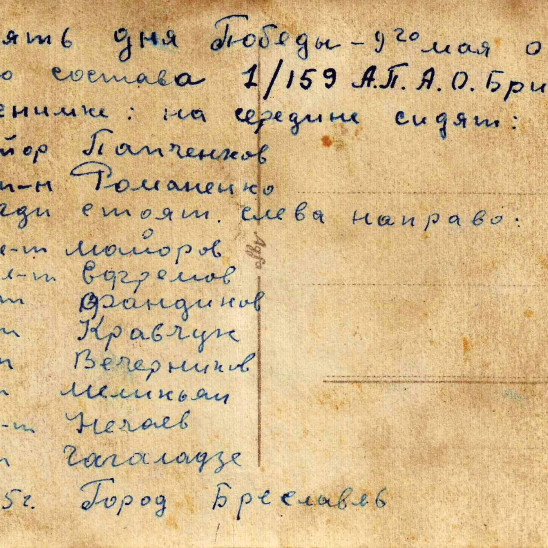 ять дня Победы - 9го мая о
о состава 1/159 А.П.А.О.Бри
енимке: на середине сидят:
йор Папченков
т-н Романенко
ади стоят. слева направо:
е-т Майоров
л-т Ефремов
т Фандинов
т Кравчук
т Вечерников
т Меликьян
-т Нечаев
т Чагаладзе
5г. Город Бреславль
Agfa